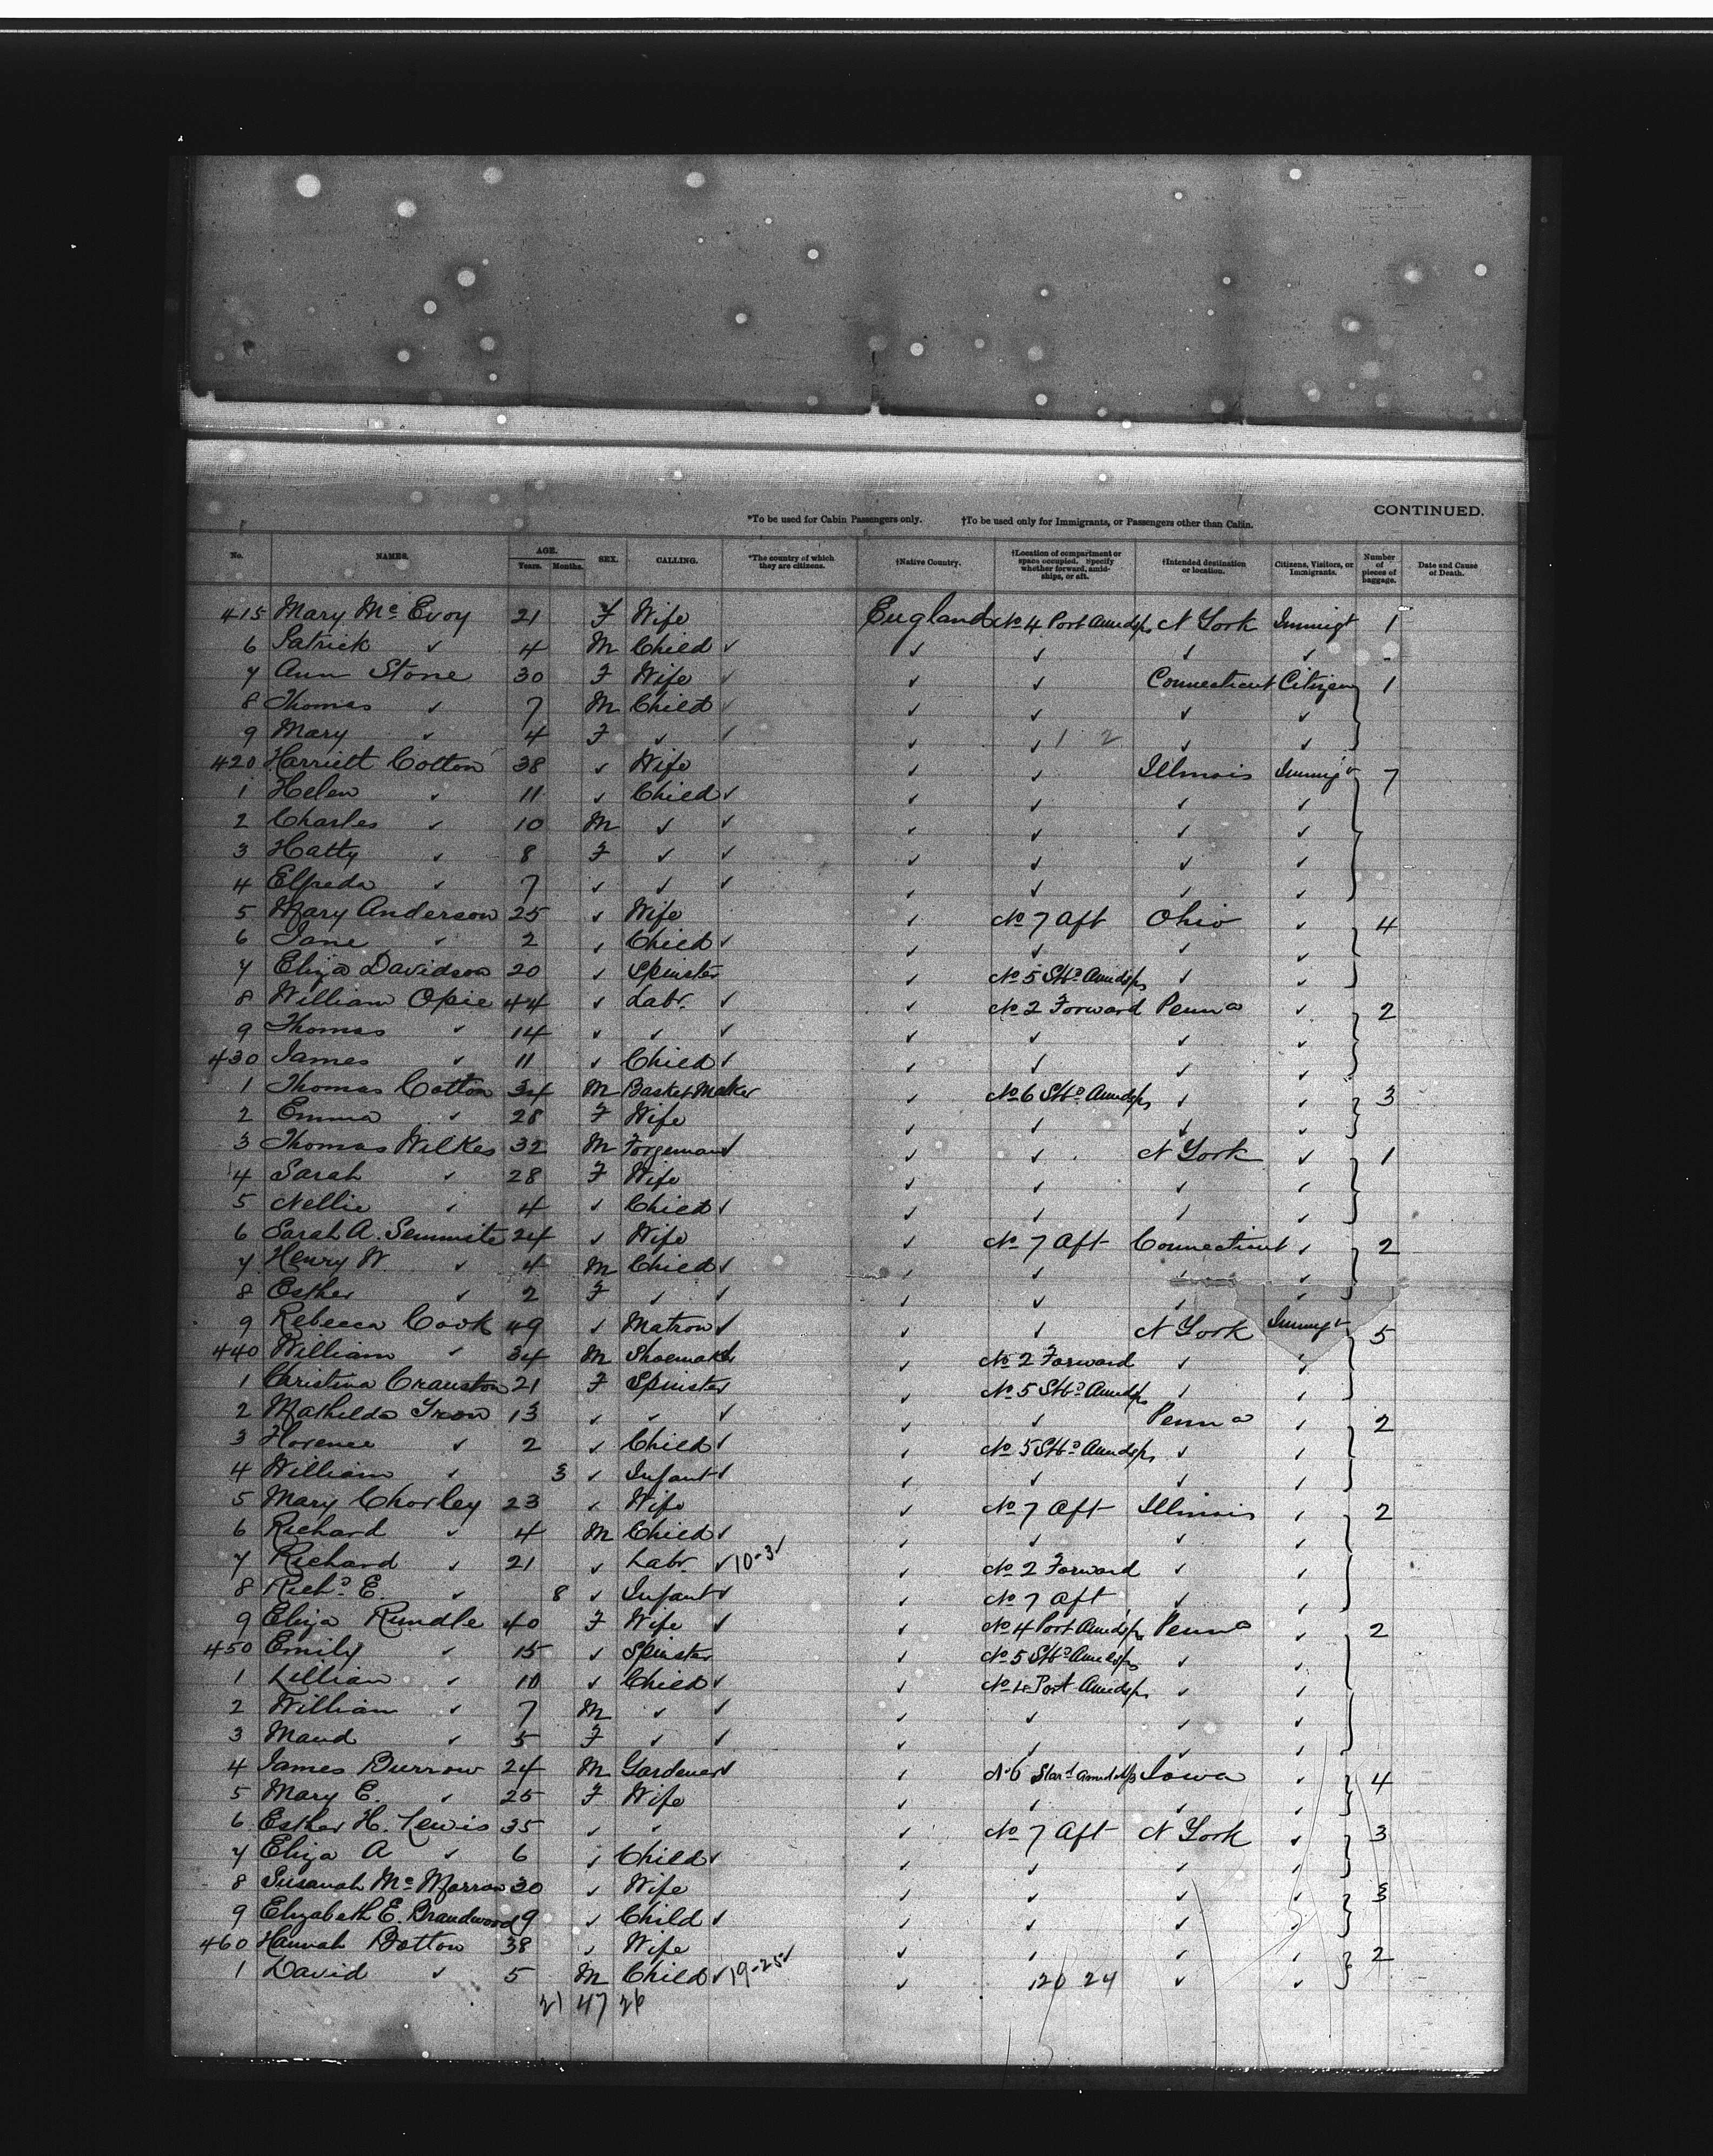 CONTINUED.
*To be used for Cabin Passengers only. †To be used only for Immigrants, or Passengers other than Cabin.
No. NAMES. AGE. Years. Months. SEX. CALLING. *The country of which they are citizens. †Native Country. †Location of compartment or space occupied. Specify whether forward, amidships, or aft. †Intended destination or location. Citizens, Visitors, or Immigrants. Number of pieces of baggage. Date and Cause of Death.
415 Mary Mc Evoy 21 F Wife England No 4 Port Amidsps N York Immigt 1
6 Patrick ✓ 4 M Child ✓ ✓ ✓ ✓ ✓
7 Ann Stone 30 F Wife ✓ ✓ ✓ Connecticut Citizen 1
8 Thomas ✓ 7 M Child ✓ ✓ ✓ ✓ ✓
9 Mary ✓ 4 F ✓ ✓ ✓ ✓ 1 2 ✓ ✓
420 Harriett Cotton 38 ✓ Wife ✓ ✓ Illinois Immigt 7
1 Helen ✓ 11 ✓ Child ✓ ✓ ✓ ✓ ✓
2 Charles ✓ 10 M ✓ ✓ ✓ ✓ ✓ ✓
3 Hatty ✓ 8 F ✓ ✓ ✓ ✓ ✓ ✓
4 Elfreda ✓ 7 ✓ ✓ ✓ ✓ ✓ ✓ ✓
5 Mary Anderson 25 ✓ Wife ✓ No 7 Aft Ohio ✓ 4
6 Jane ✓ 2 ✓ Child ✓ ✓ ✓ ✓ ✓
7 Eliza Davidson 20 ✓ Spinster ✓ No 5 Stbd Amidsps ✓ ✓
8 William Opie 44 ✓ Labr. ✓ ✓ No 2 Forward Penna ✓ 2
9 Thomas ✓ 14 ✓ ✓ ✓ ✓ ✓ ✓ ✓
430 James ✓ 11 ✓ Child ✓ ✓ ✓ ✓ ✓
1 Thomas Cotton 34 M Basket Maker ✓ No 6 Stbd Amidsps ✓ ✓ 3
2 Emma ✓ 28 F Wife ✓ ✓ ✓ ✓
3 Thomas Wilkes 32 M Forgeman ✓ ✓ ✓ N York ✓ 1
4 Sarah ✓ 28 F Wife ✓ ✓ ✓ ✓
5 Nellie ✓ 4 ✓ Child ✓ ✓ ✓ ✓ ✓
6 Sarah A. 24 ✓ Wife ✓ No 7 Aft Connecticut ✓ 2
7 Henry W. ✓ 4 M Child ✓ ✓ ✓ ✓ ✓
8 Esther ✓ 2 F ✓ ✓ ✓ ✓ ✓ ✓
9 Rebecca Cook 49 ✓ Matron ✓ ✓ ✓ N York Immigt 5
440 William ✓ 34 M Shoemaker ✓ No 2 Forward ✓ ✓
1 Christina Cranston 21 F Spinster ✓ No 5 Stbd Amidsps ✓ ✓
2 Mathilda 13 ✓ ✓ ✓ ✓ ✓ Penna ✓ 2
3 Florence ✓ 2 ✓ Child ✓ ✓ No 5 Stbd Amidsps ✓ ✓
4 William ✓ 3 ✓ Infant ✓ ✓ ✓ ✓ ✓
5 Mary Chorley 23 ✓ Wife ✓ No 7 Aft Illinois ✓ 2
6 Richard ✓ 4 M Child ✓ ✓ ✓ ✓ ✓
7 Richard ✓ 21 ✓ Labr. ✓ 10-3 ✓ ✓ No 2 Forward ✓ ✓
8 Richd E. ✓ 8 ✓ Infant ✓ ✓ No 7 Aft ✓ ✓
9 Eliza Rundle 40 F Wife ✓ ✓ No 4 Port Amidsps Penna ✓ 2
450 Emily ✓ 15 ✓ Spinster ✓ No 5 Stbd Amidsps ✓ ✓
1 Lillian ✓ 10 ✓ Child ✓ ✓ No 4 Port Amidsps ✓ ✓
2 William ✓ 7 M ✓ ✓ ✓ ✓ ✓ ✓
3 Maud ✓ 5 F ✓ ✓ ✓ ✓ ✓ ✓
4 James Burrow 24 M Gardener ✓ ✓ No 6 Stard Amidships Iowa ✓ 4
5 Mary E. ✓ 25 F Wife ✓ ✓ ✓ ✓
6 Esther H. Lewis 35 ✓ ✓ ✓ No 7 Aft N York ✓ 3
7 Eliza A ✓ 6 ✓ Child ✓ ✓ ✓ ✓ ✓
8 Susanah Mc Morran 30 ✓ Wife ✓ ✓ ✓ ✓ 3
9 Elizabeth E. Brandwood 9 ✓ Child ✓ ✓ ✓ ✓ ✓
460 Hannah Botton 38 ✓ Wife ✓ ✓ ✓ ✓ 2
1 David ✓ 5 M Child ✓ 19-25 ✓ ✓ 20 24 ✓ ✓
21 47 26